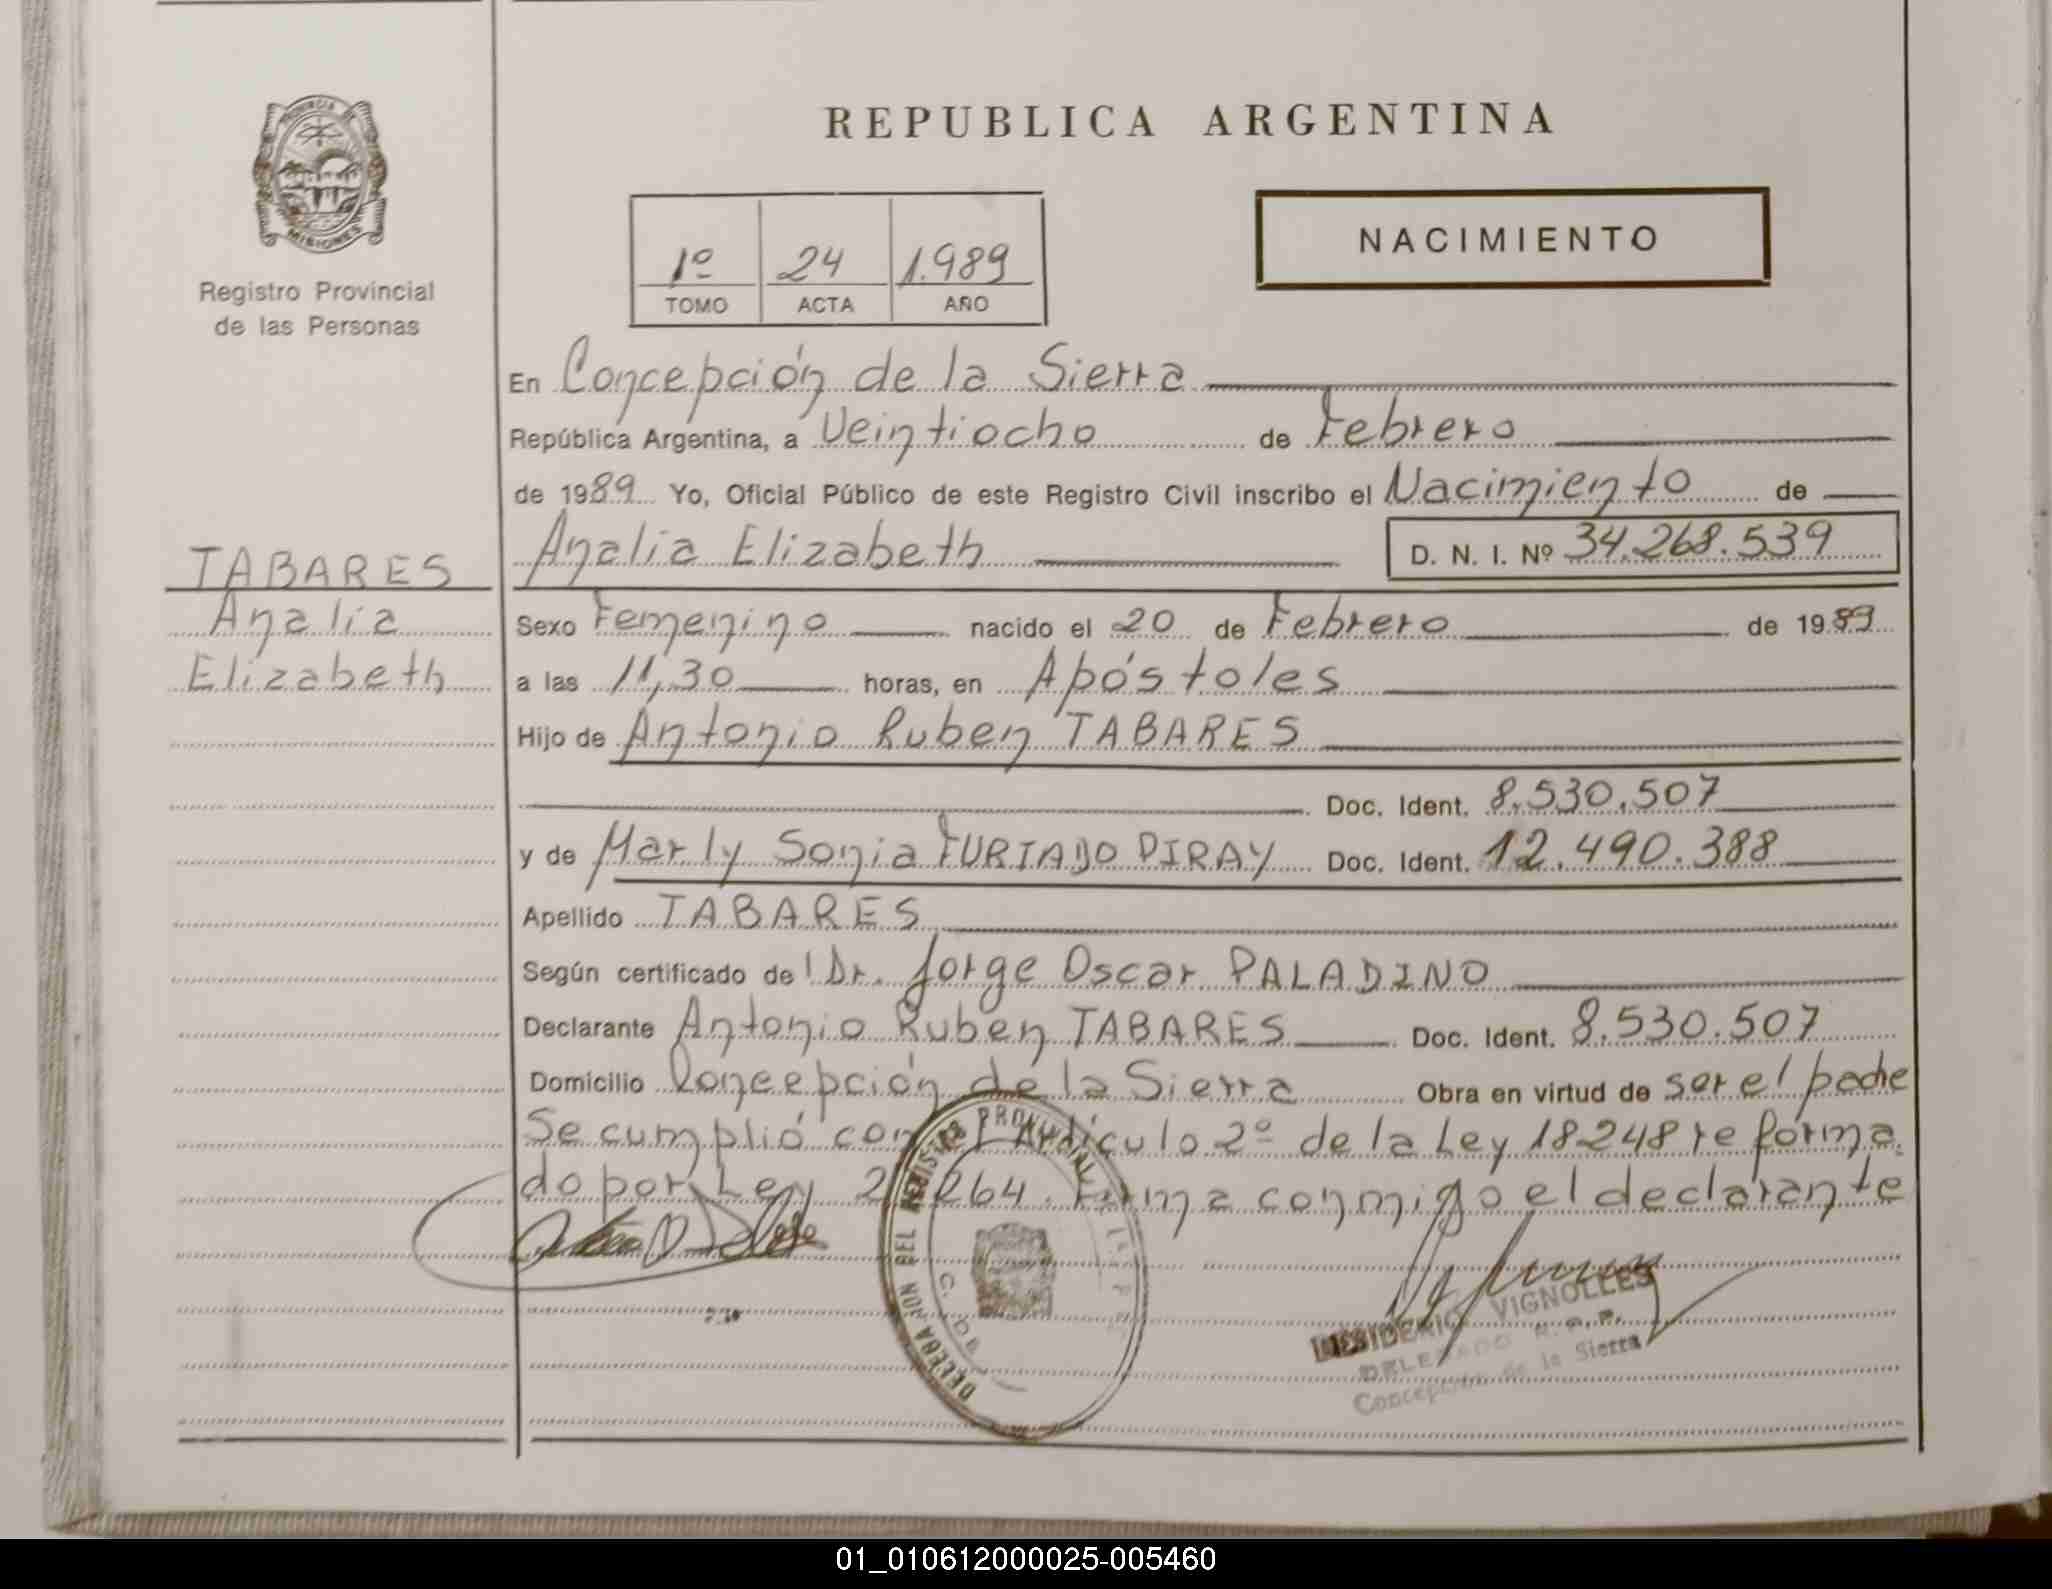 PROVINCIA DE
MISIONES
Registro Provincial
de las Personas
REPUBLICA ARGENTINA
1º 24 1.989
TOMO ACTA AÑO
NACIMIENTO
En Concepción de la Sierra
República Argentina, a Veintiocho de Febrero
de 1989 Yo, Oficial Público de este Registro Civil inscribo el Nacimiento de
TABARES
Analia
Elizabeth
Analia Elizabeth D. N. I. Nº 34.268.539
Sexo Femenino nacido el 20 de Febrero de 1989
a las 11,30 horas, en Apóstoles
Hijo de Antonio Ruben TABARES
Doc. Ident. 8.530.507
y de Marly Sonia FURTADO PIRAY Doc. Ident. 12.490.388
Apellido TABARES
Según certificado de Dr. Jorge Oscar PALADINO
Declarante Antonio Ruben TABARES Doc. Ident. 8.530.507
Domicilio Concepción de la Sierra Obra en virtud de ser el padre
Se cumplió con Artículo 2º de la Ley 18248 reforma
do por Ley 264. Firma conmigo el declarante
DEL REGISTRO PROVINCIAL DE
DESIDERIO VIGNOLLES
DELEGADO R. P. P.
Concepción de la Sierra
01_010612000025-005460